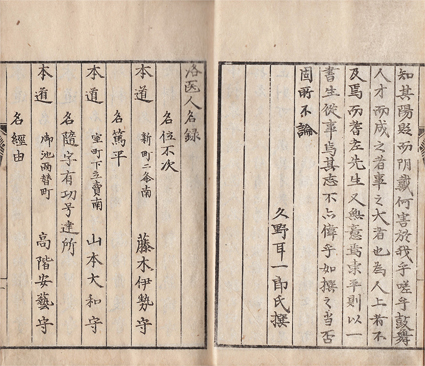 知其陽貶而阴戴何害於我乎嗟乎鼓舞
人才而成之者事之大者也為人上者不
及焉而瞽左先生人無意焉隶平則以一
書生從事焉其志不亦偉乎如撰之当否
固所不論
久野耳一郎氏撰
洛医人名録
名位不次
本道 新町二条南 藤木伊勢守
名篤平
本道 室町下立賣南 山本大和守
名隨字有功子達所
本道 御池両替町 高階安藝守
名經由